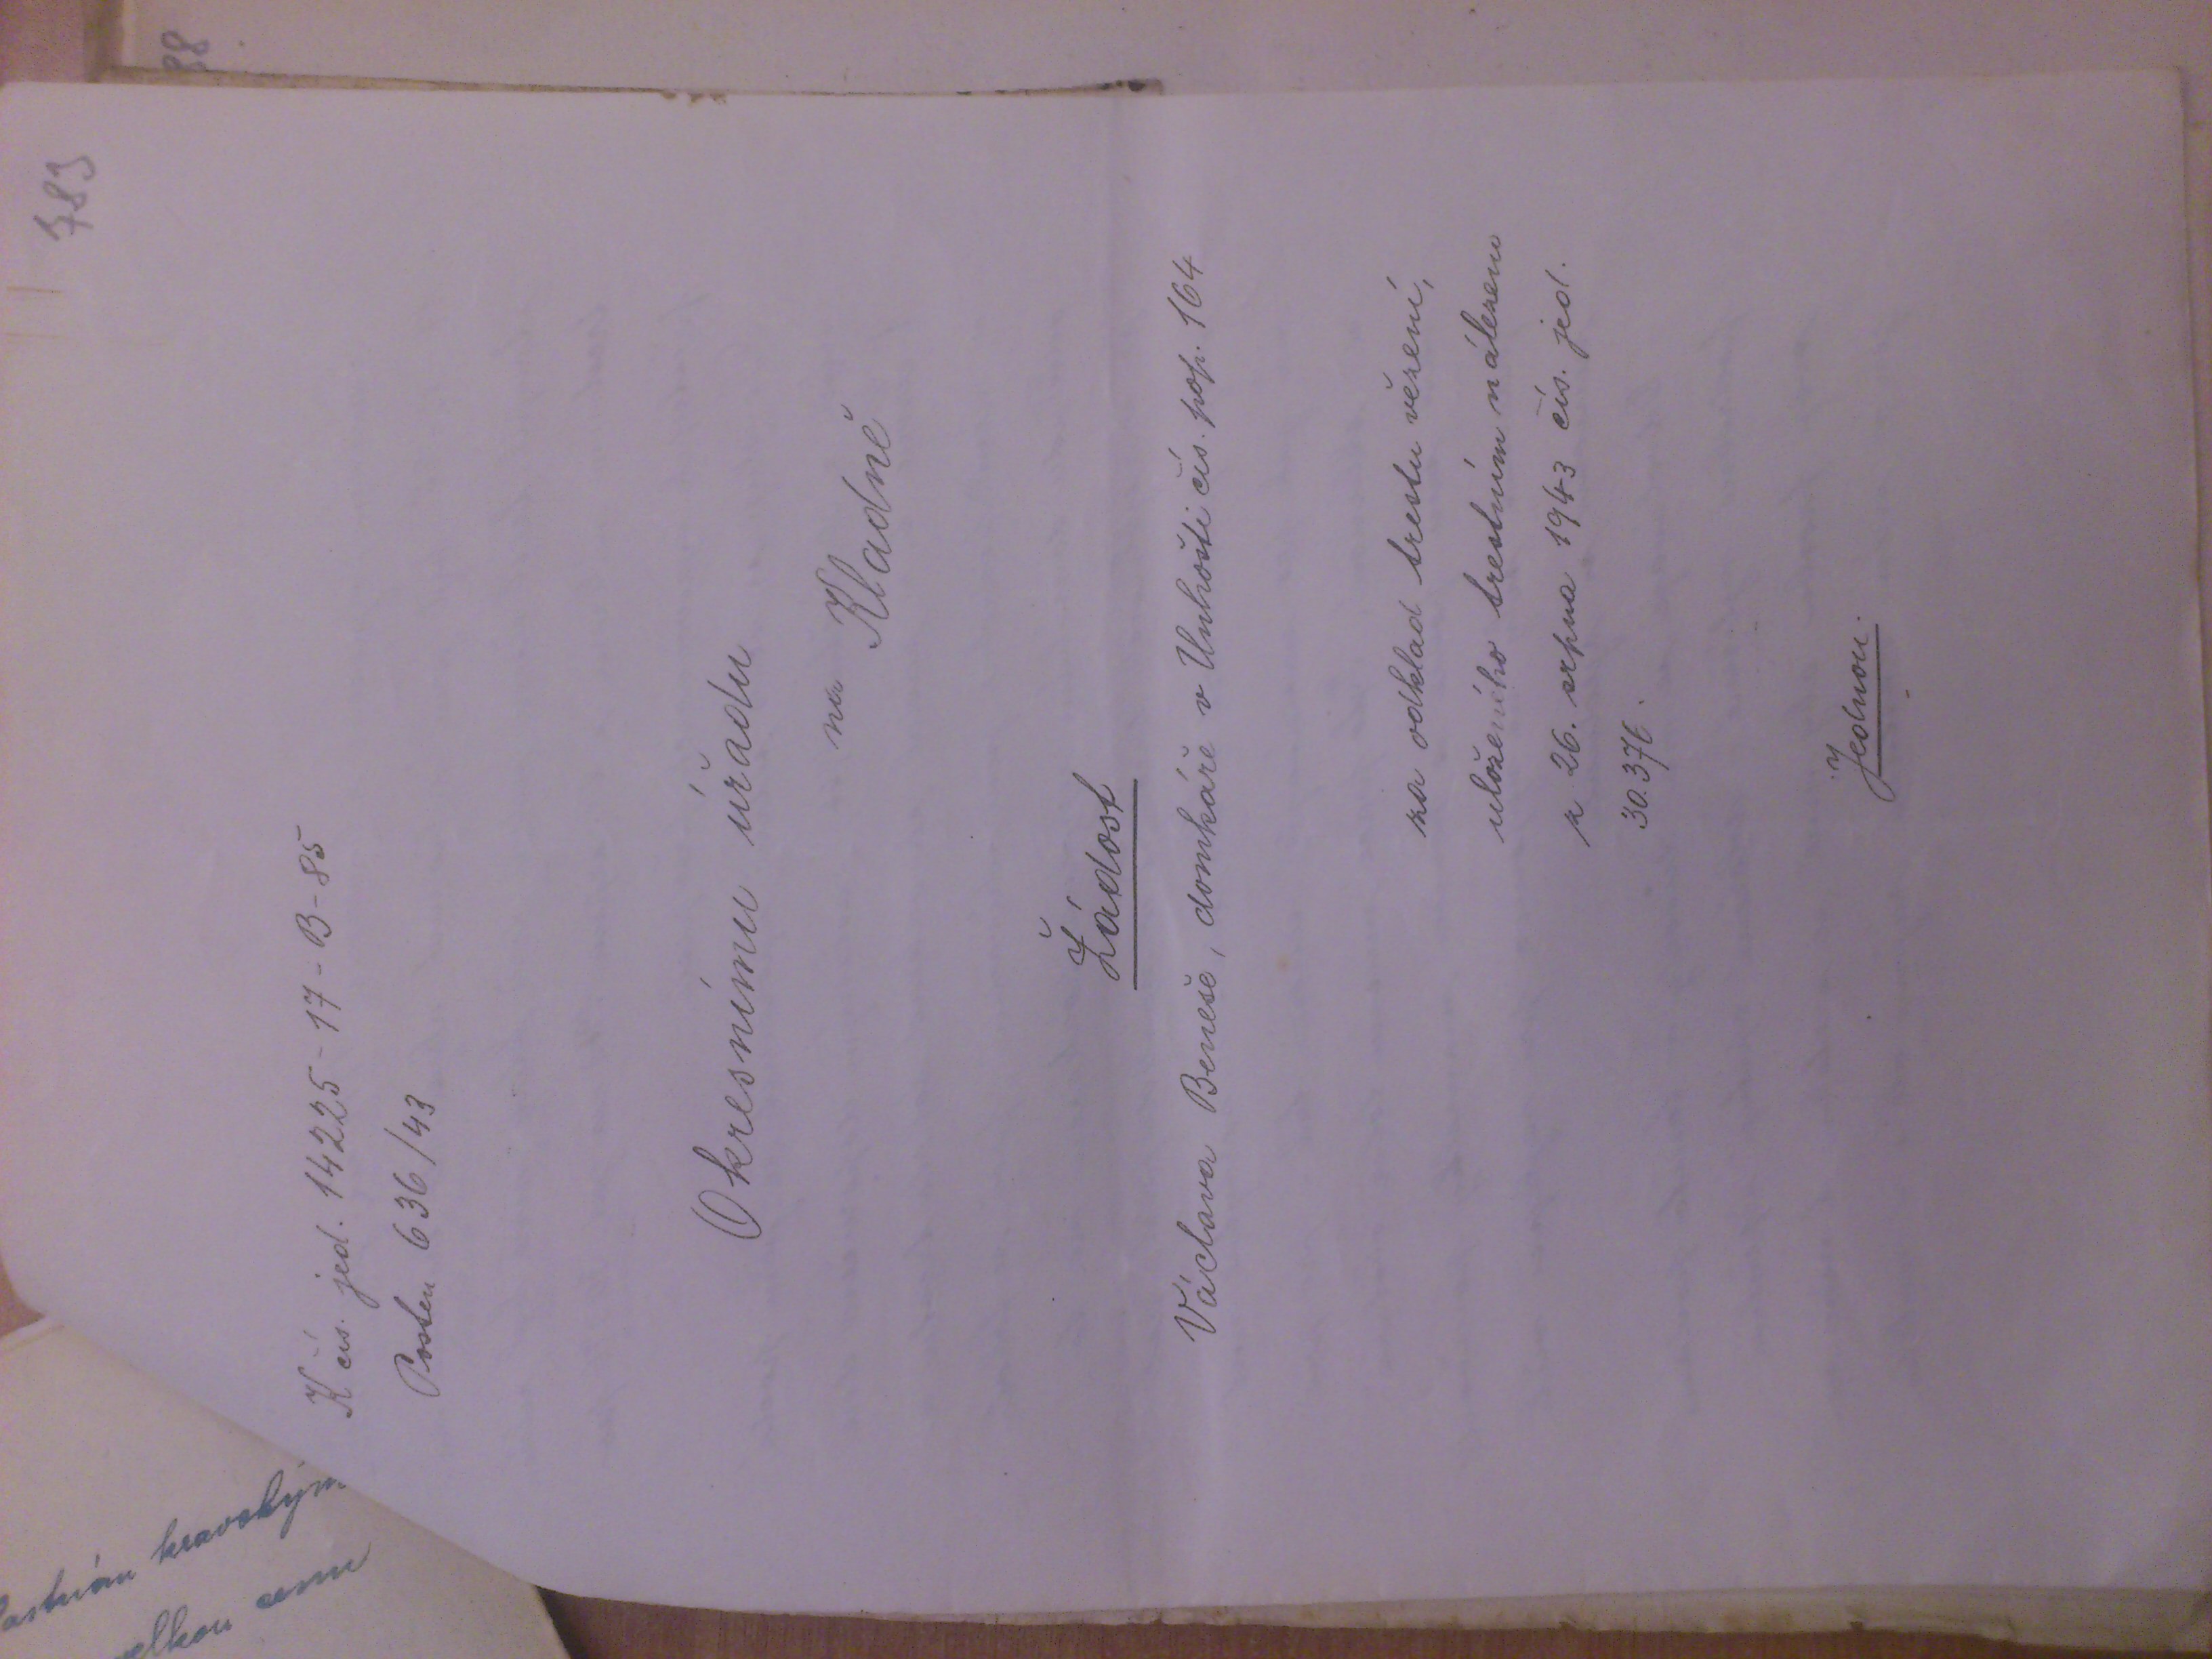 783
88
K čís. jed. 14225-17-B-85
Posten 636/43
Okresnímu úřadu
na Kladně
Žádost
Václava Beneše, domkáře v Unhošti čís. pop. 164
za odklad trestu vězení,
uloženého trestním nálezem
z 26. srpna 1943 čís. jed.
30.376.
Jednou.